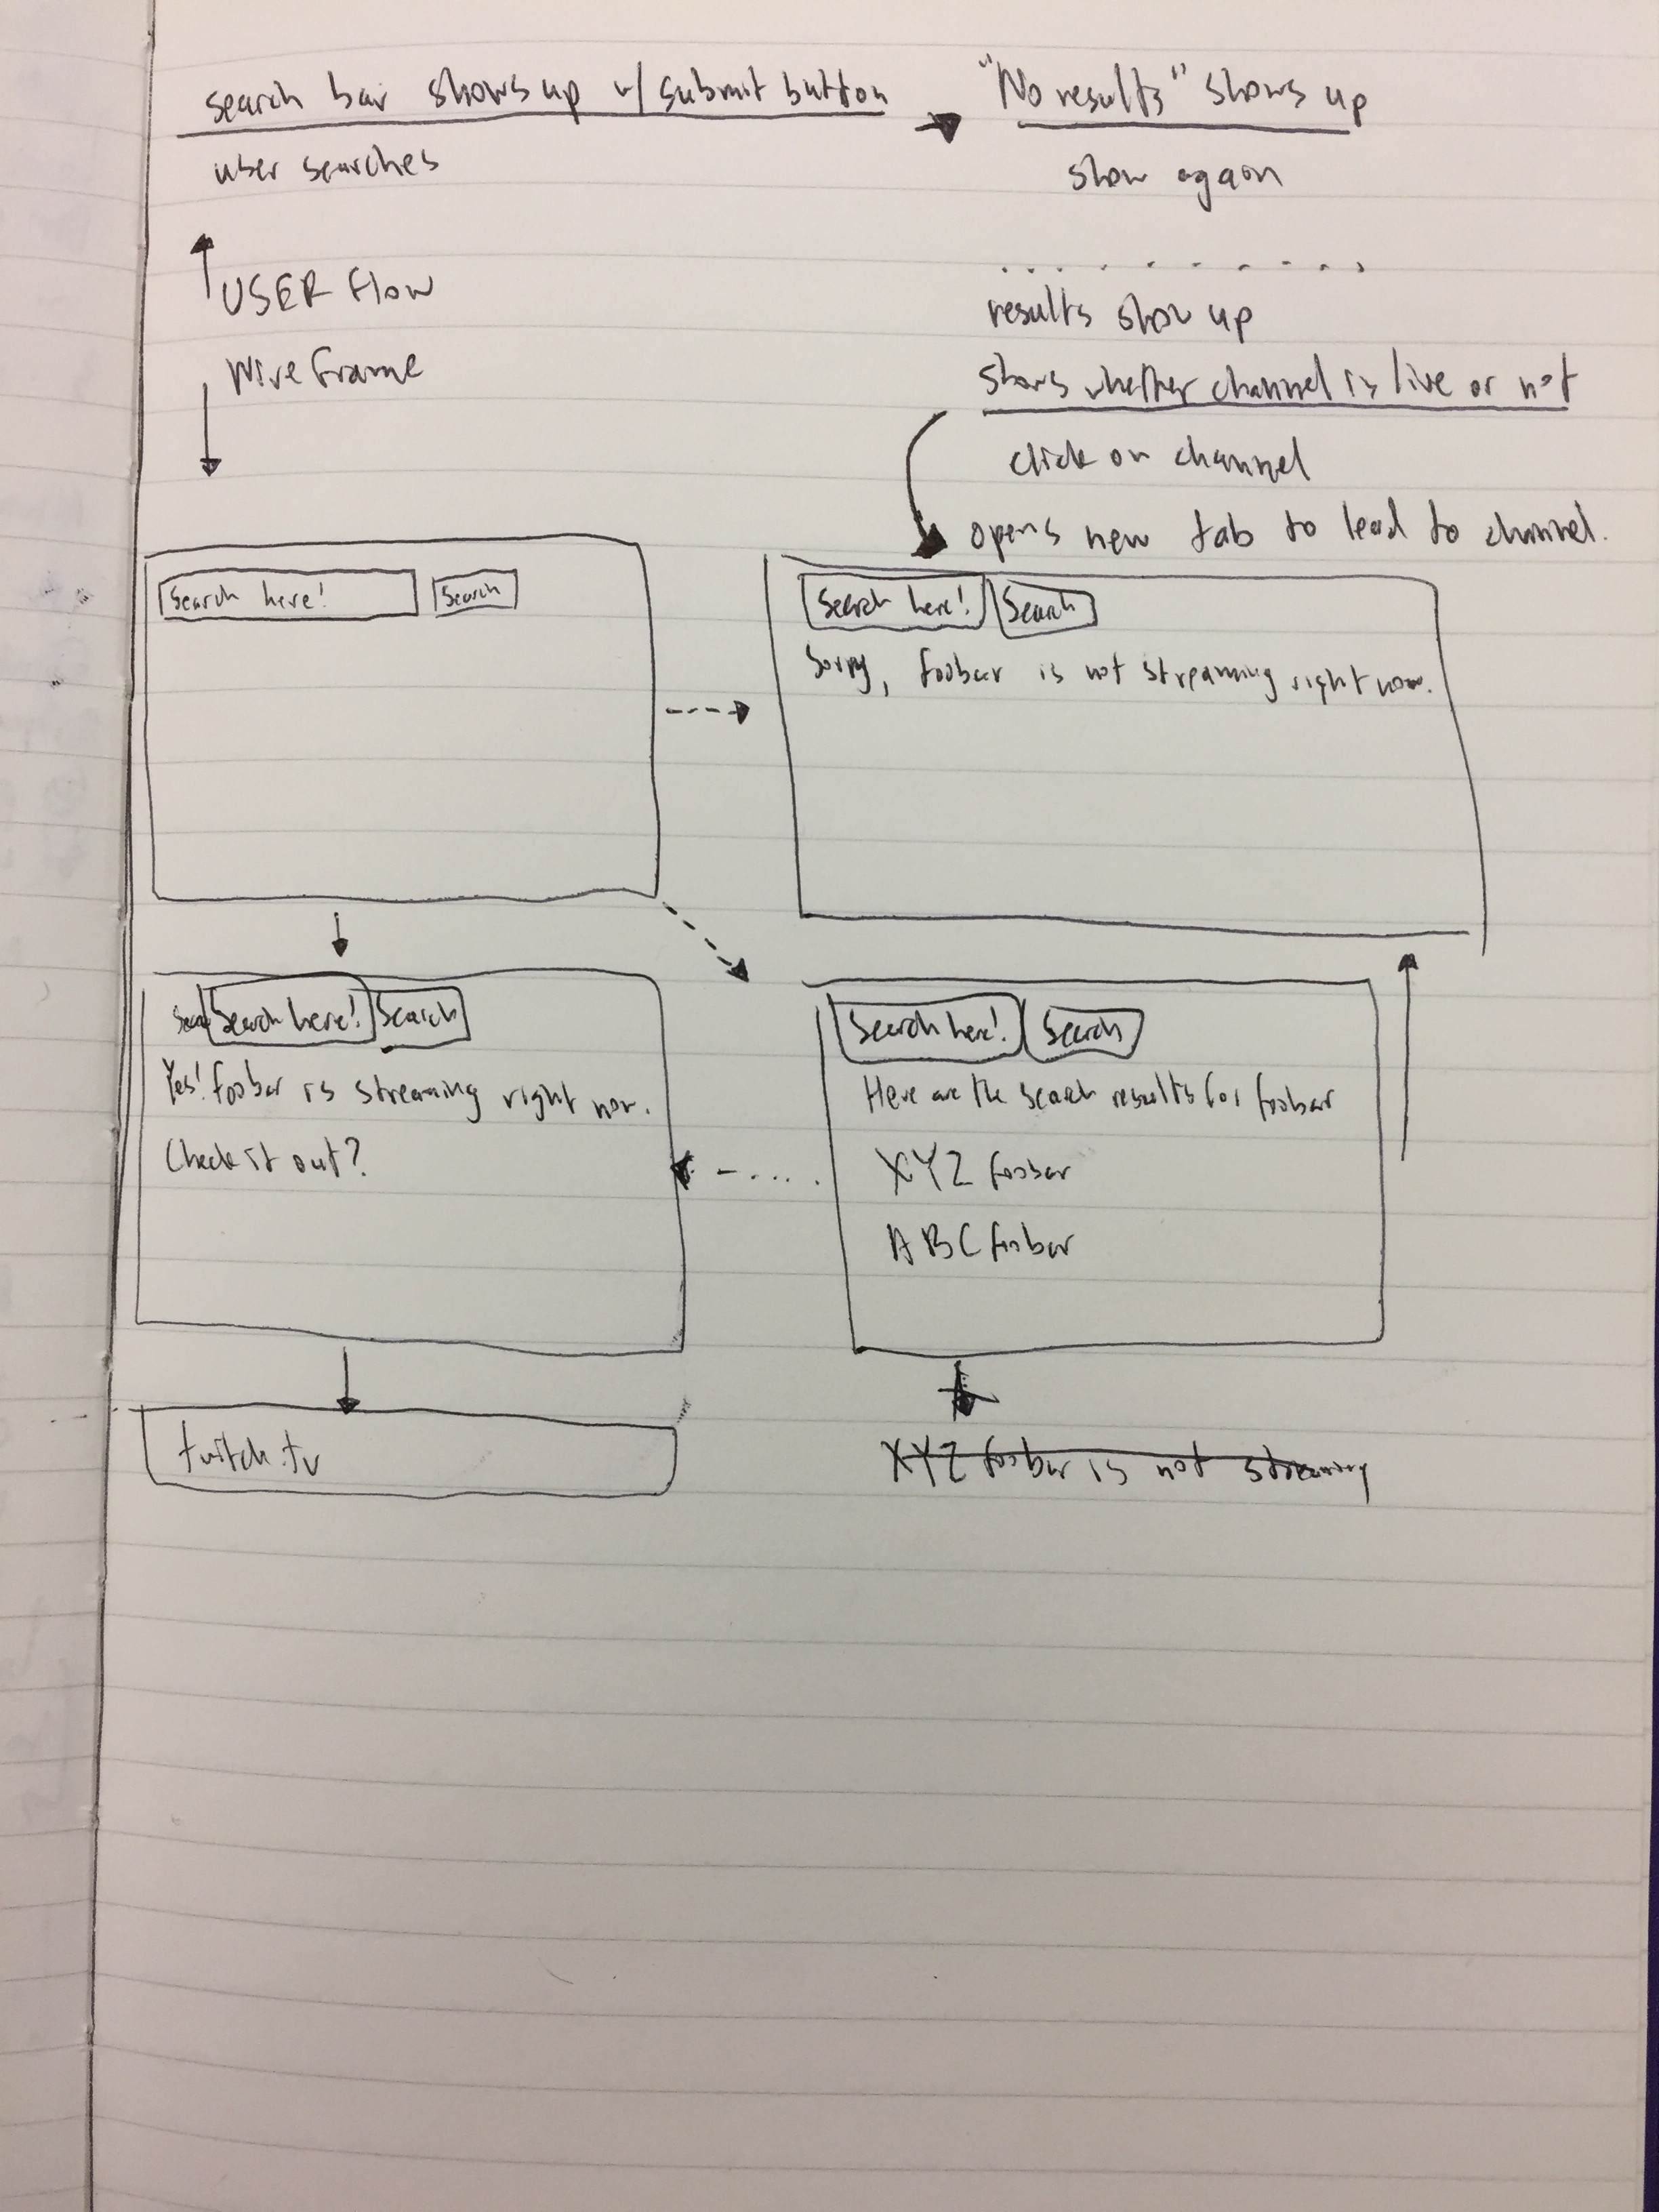 search bar shows up w/ submit button
user searches
"No results" shows up
show again
USER Flow
Wireframe
results show up
shows whether channel is live or not
click on channel
opens new tab to lead to channel.
Search here! Search
Search here! Search
Sorry, foobar is not streaming right now.
Sear Search here! Search
Yes! foobar is streaming right now.
Check it out?
Search here! Search
Here are the search results for foobar
XYZ foobar
ABC foobar
twitch.tv
XYZ foobar is not streaming